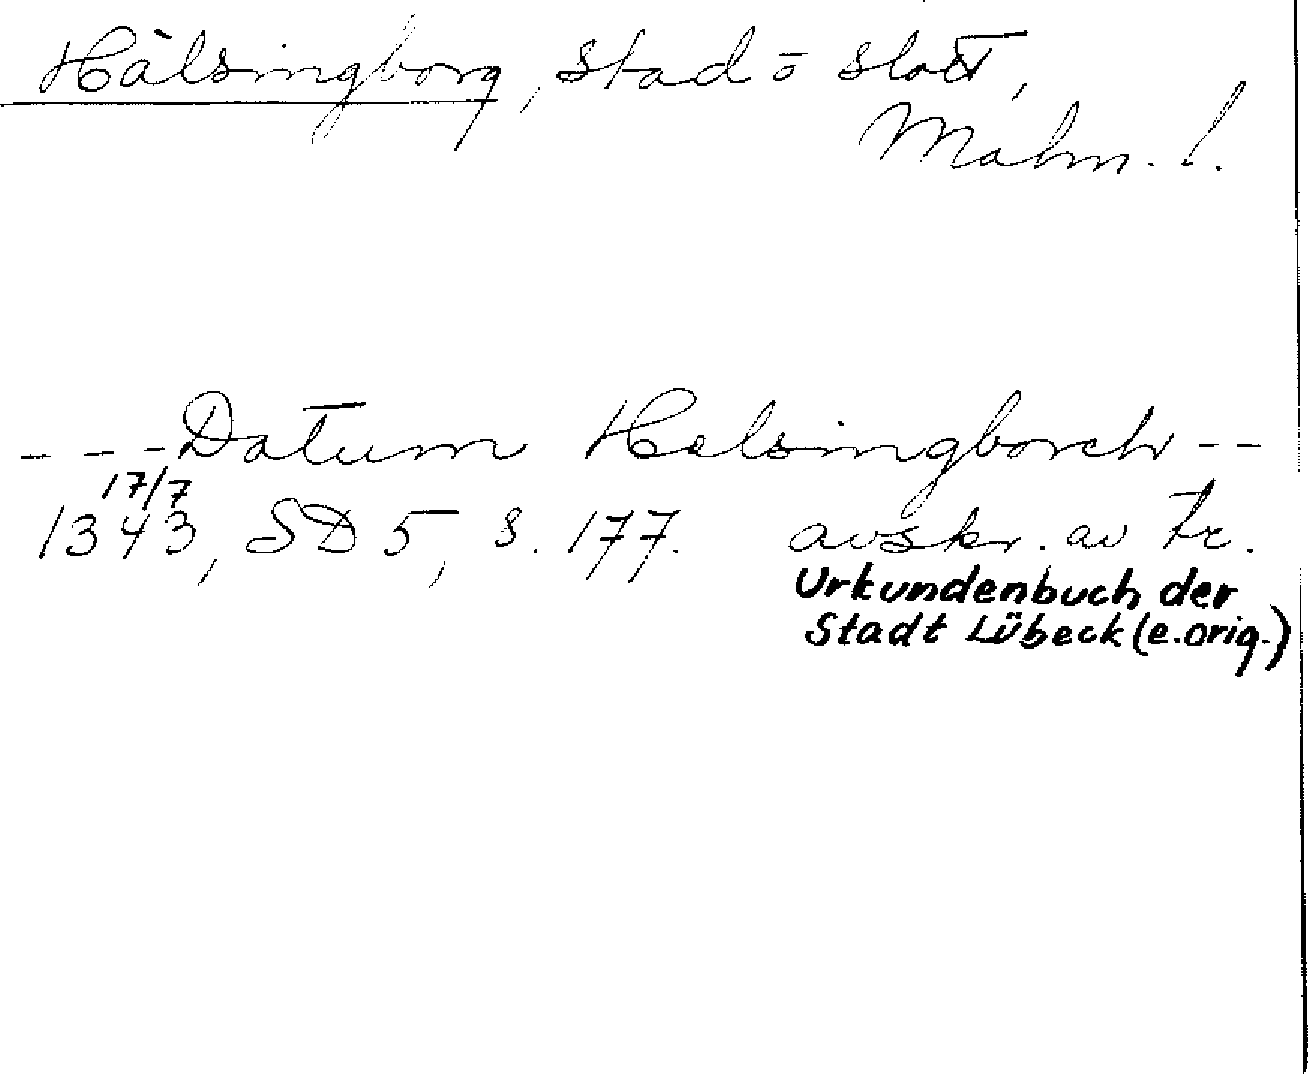 Hälsingborg, stad o slott,
Malm. l.
- - - Datum Helsingborch - -
17/7
1343, SD 5, s. 177. avskr. av tr.
Urkundenbuch der
Stadt Lübeck (e. orig.)